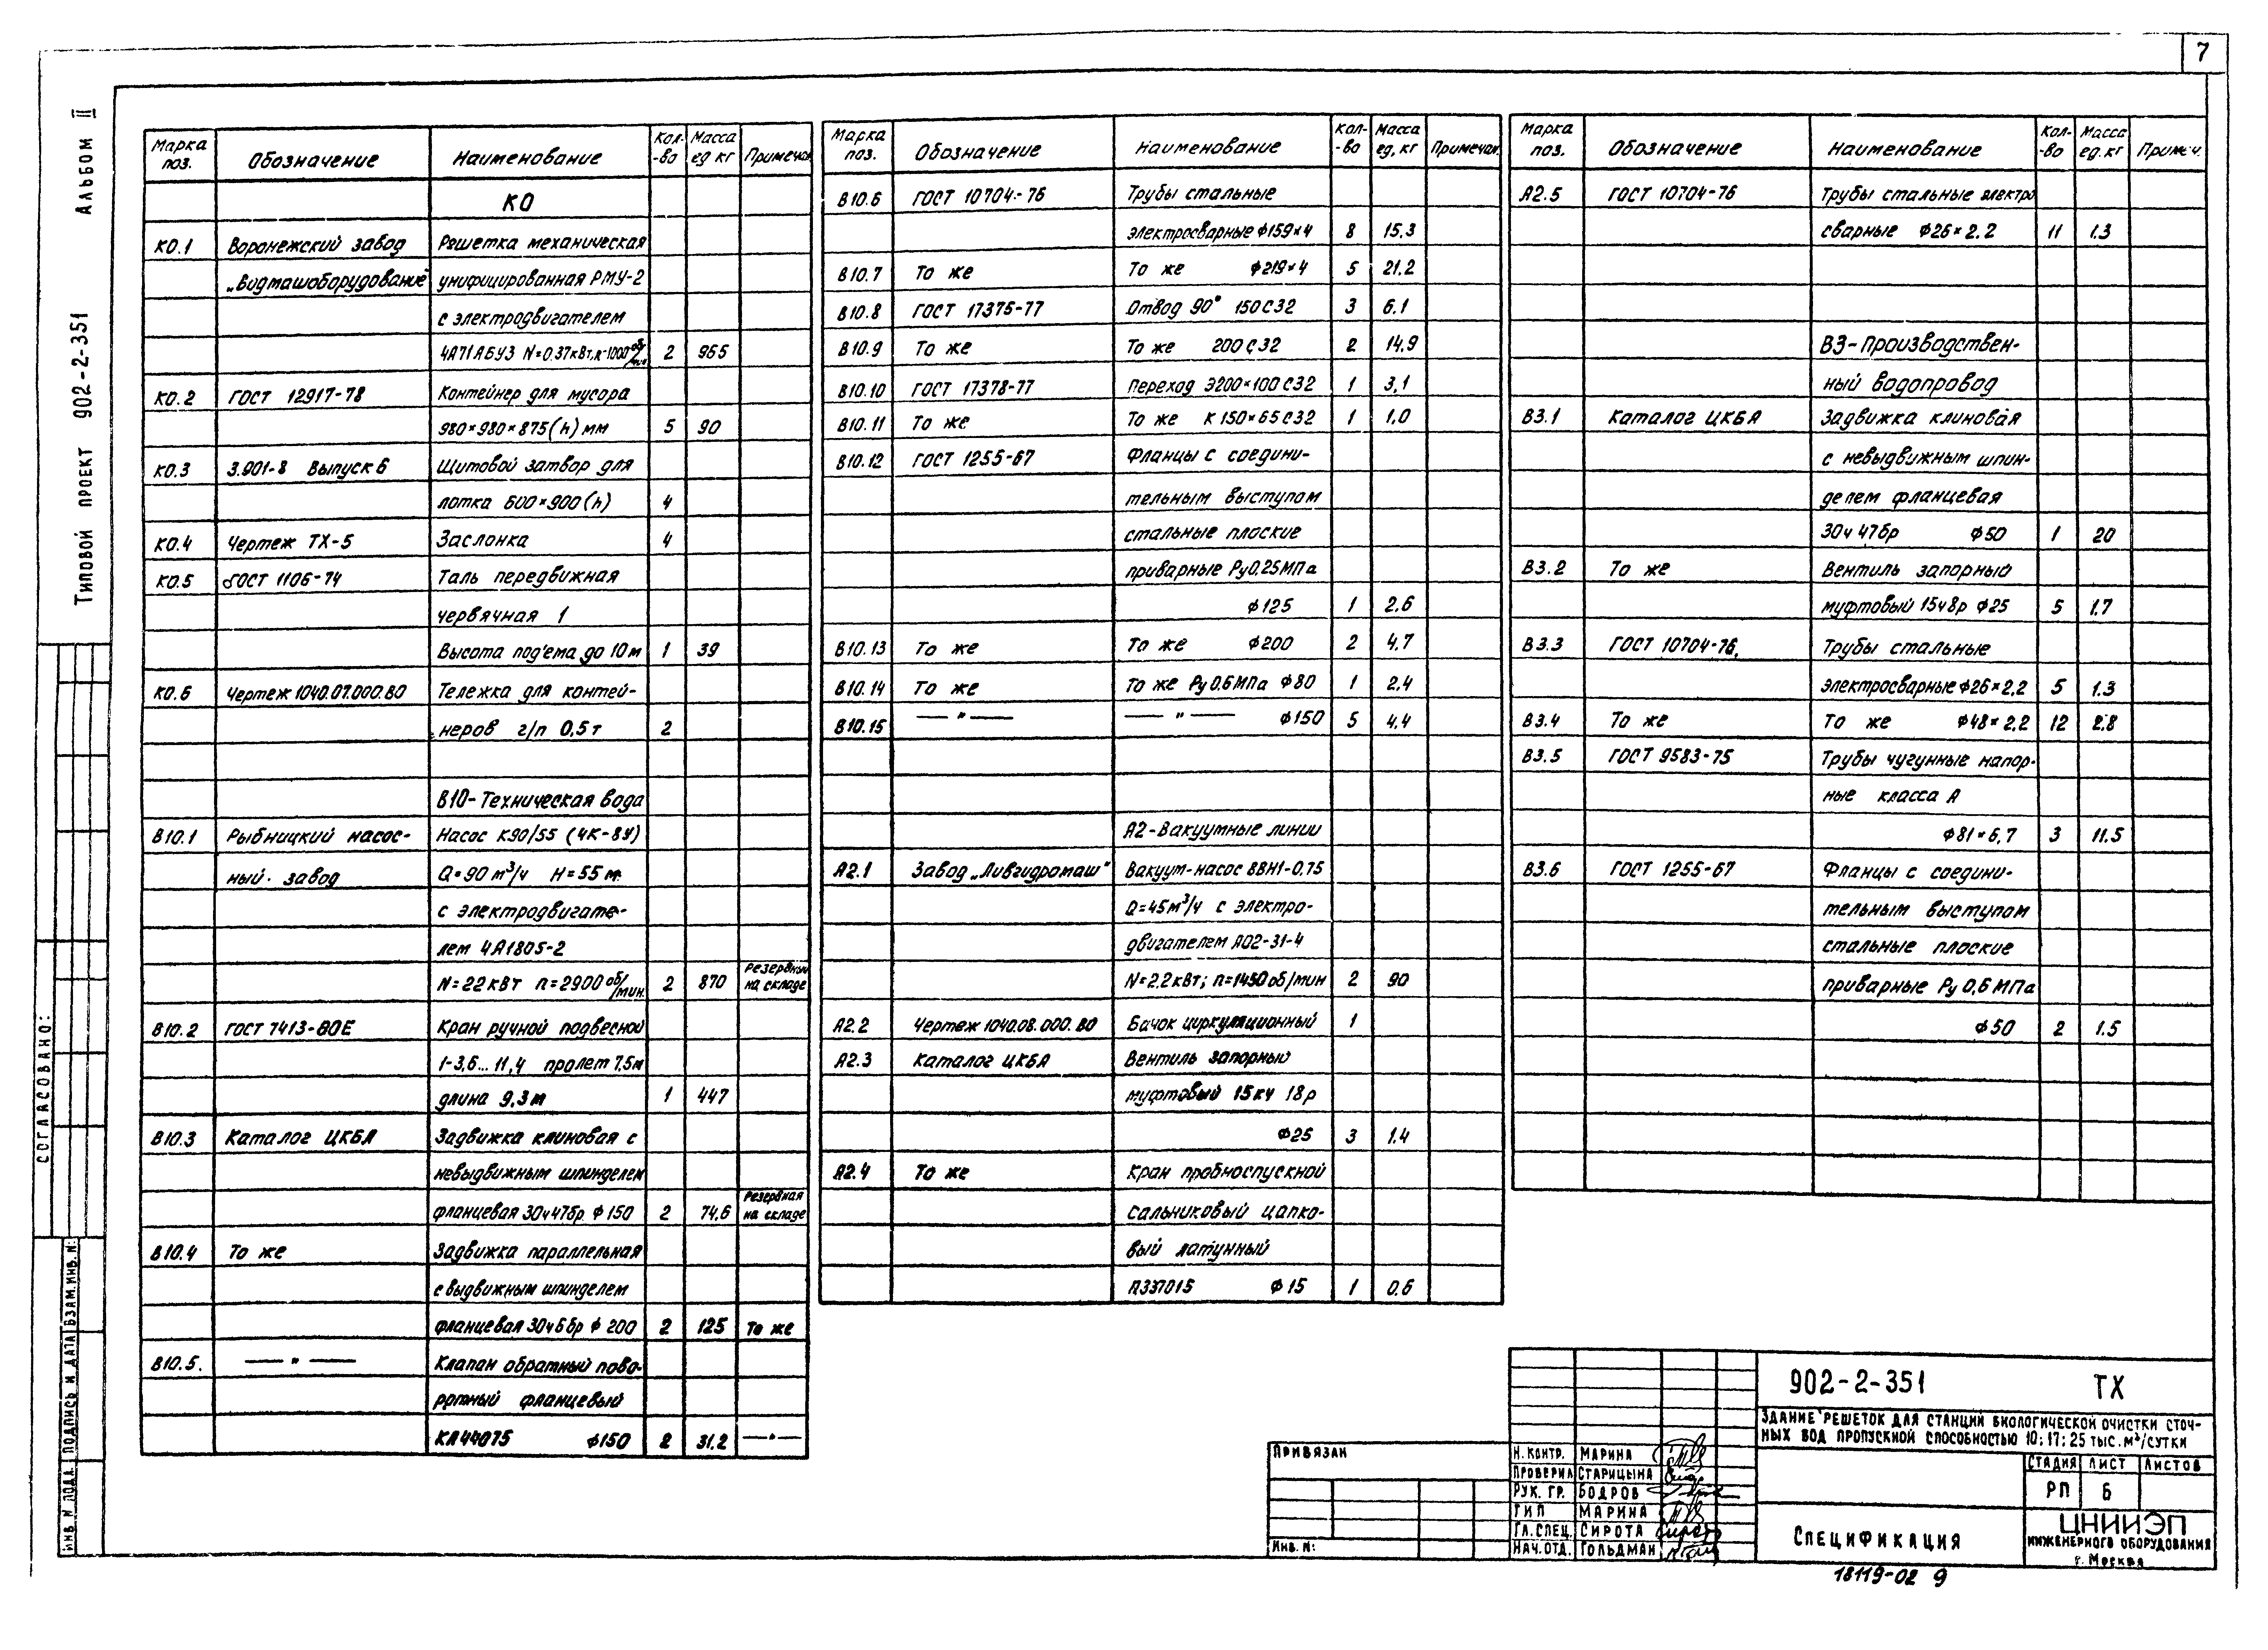 7
Альбом II
Типовой проект 902-2-351
Согласовано:
Взам. инв. №:
Подпись и дата
Инв. № подл.
Марка поз. Обозначение Наименование Кол-во Масса ед кг Примечан.
КО
КО.1 Воронежский завод Решетка механическая
„Водмашоборудование" унифицированная РМУ-2
с электродвигателем
4А71А6У3 N=0,37кВт, n-1000 об/мин 2 955
КО.2 ГОСТ 12917-78 Контейнер для мусора
980×980×875(h) мм 5 90
КО.3 3.901-8 Выпуск 6 Щитовой затвор для
лотка 600×900(h) 4
КО.4 Чертеж ТХ-5 Заслонка 4
КО.5 ГОСТ 1106-74 Таль передвижная
червячная 1
Высота под'ема до 10м 1 39
КО.6 Чертеж 1040.07.000.ВО Тележка для контей-
неров г/п 0,5т 2
В10-Техническая вода
В10.1 Рыбницкий насос- Насос К90/55 (4К-8У)
ный завод Q=90 м³/ч H=55м
с электродвигате-
лем 4А180S-2
N=22кВт n=2900 об/мин. 2 870 Резервный на складе
В10.2 ГОСТ 7413-80Е Кран ручной подвесной
1-3,6...11,4 пролет 7,5м
длина 9,3м 1 447
В10.3 Каталог ЦКБА Задвижка клиновая с
невыдвижным шпинделем
фланцевая 30ч47бр ф150 2 74,6 Резервная на складе
В10.4 То же Задвижка параллельная
с выдвижным шпинделем
фланцевая 30ч6бр ф200 2 125 То же
В10.5. —"— Клапан обратный пово-
ротный фланцевый
КА44075 ф150 2 31.2 —"—
Марка поз. Обозначение Наименование Кол-во Масса ед, кг Примечан.
В10.6 ГОСТ 10704-76 Трубы стальные
электросварные ф159×4 8 15.3
В10.7 То же То же ф219×4 5 21.2
В10.8 ГОСТ 17375-77 Отвод 90° 150С32 3 6.1
В10.9 То же То же 200С32 2 14,9
В10.10 ГОСТ 17378-77 Переход Э200×100С32 1 3,1
В10.11 То же То же К 150×65С32 1 1,0
В10.12 ГОСТ 1255-67 Фланцы с соедини-
тельным выступом
стальные плоские
приварные Ру0.25МПа
ф125 1 2.6
В10.13 То же То же ф200 2 4,7
В10.14 То же То же Ру0.6МПа ф80 1 2.4
В10.15 —"— —"— ф150 5 4,4
А2-Вакуумные линии
А2.1 Завод „Ливгидромаш" Вакуум-насос ВВН1-0,75
Q=45м³/ч с электро-
двигателем АО2-31-4
N=2,2кВт; n=1450 об/мин 2 90
А2.2 Чертеж 1040.08.000.ВО Бачок циркуляционный 1
А2.3 Каталог ЦКБА Вентиль запорный
муфтовый 15кч 18р
ф25 3 1.4
А2.4 То же Кран пробноспускной
сальниковый цапко-
вый латунный
П337015 ф15 1 0.6
Марка поз. Обозначение Наименование Кол-во Масса ед. кг Примеч.
А2.5 ГОСТ 10704-76 Трубы стальные электро
сварные ф26×2.2 11 1.3
В3-производствен-
ный водопровод
В3.1 Каталог ЦКБА Задвижка клиновая
с невыдвижным шпин-
делем фланцевая
30ч 47бр ф50 1 20
В3.2 То же Вентиль запорный
муфтовый 15ч8р ф25 5 1.7
В3.3 ГОСТ 10704-76. Трубы стальные
электросварные ф26×2,2 5 1.3
В3.4 То же То же ф48×2.2 12 2.8
В3.5 ГОСТ 9583-75 Трубы чугунные напор-
ные класса А
ф81×6,7 3 11.5
В3.6 ГОСТ 1255-67 Фланцы с соедини-
тельным выступом
стальные плоские
приварные Ру 0,6 МПа
ф50 2 1.5
Привязан
Инв. №:
Н. контр. Марина
Проверил Старицына
Рук. гр. Бодров
ГИП Марина
Гл. спец. Сирота
Нач. отд. Гольдман
902-2-351 ТХ
Здание решеток для станций биологической очистки сточ-
ных вод пропускной способностью 10; 17; 25 тыс. м³/сутки
Стадия Лист Листов
РП 6
Спецификация
ЦНИИЭП
инженерного оборудования
г. Москва
18119-02 9